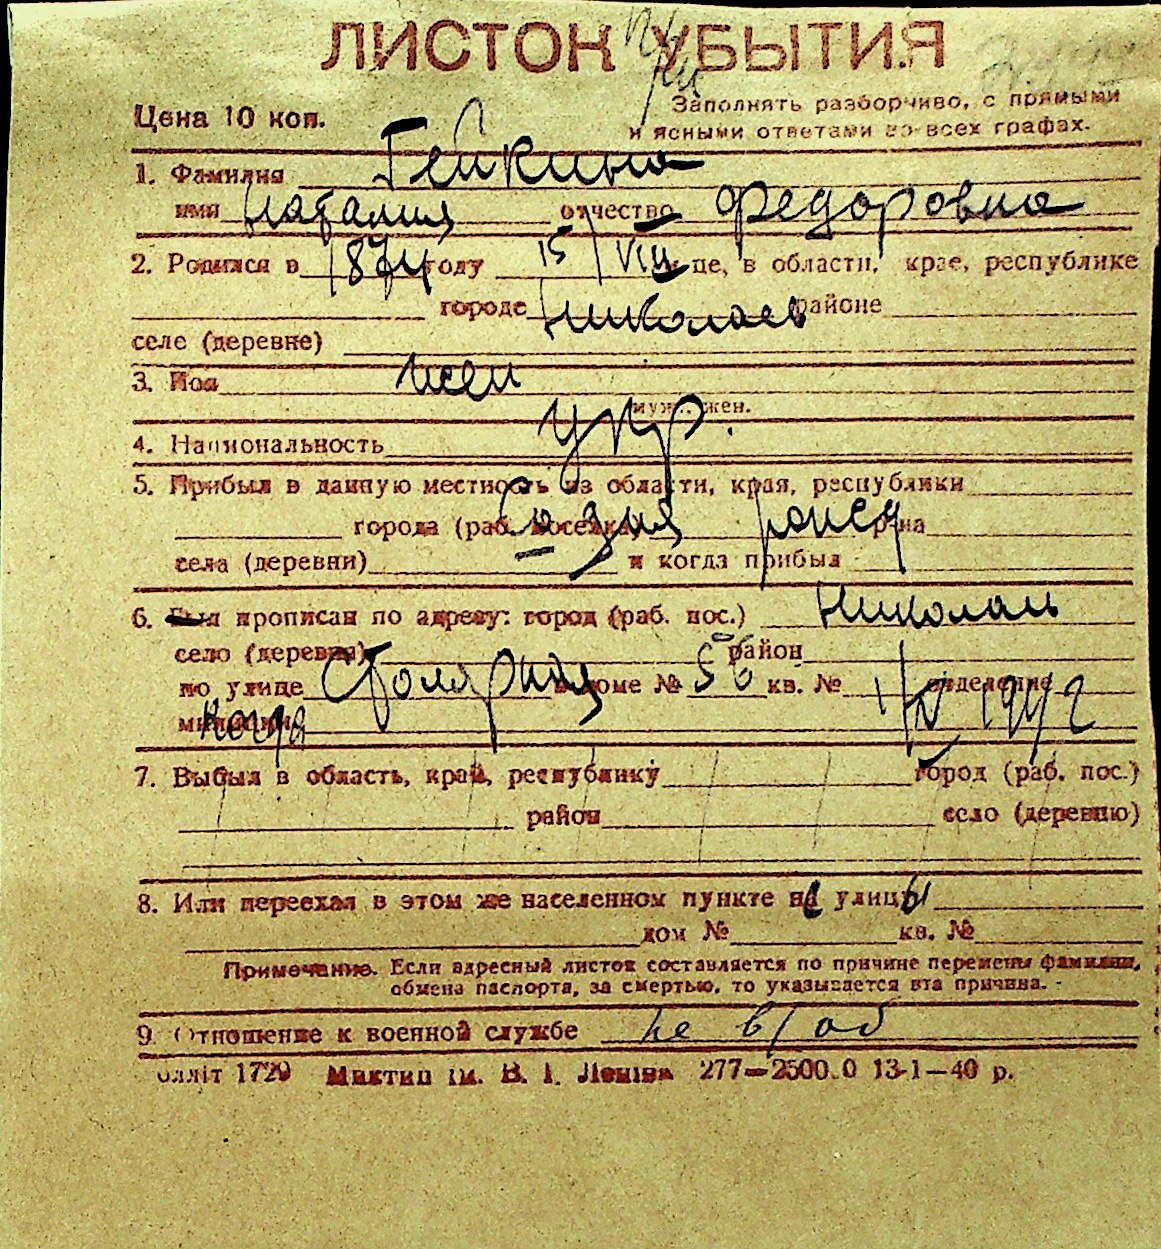 ЛИСТОК УБЫТИЯ
Цена 10 коп.
Заполнять разборчиво, с прямыми
и ясными ответами во всех графах.
1. Фамилия Гейкина
имя Наталия отчество Федоровна
2. Родился в 1874 году 15/VIII м-це, в области, крае, республике
городе Николаев районе
селе (деревне)
3. Пол жен
муж., жен.
4. Национальность укр.
5. Прибыл в данную местность из области, края, республики
города (раб. поселка) р-на
села (деревни) и когда прибыл
6. Был прописан по адресу: город (раб. пос.) Николаев
село (деревня) район
по улице Столярная в доме № 56 кв. № отделение
милиции 1942
7. Выбыл в область, край, республику город (раб. пос.)
район село (деревню)
8. Или переехал в этом же населенном пункте на улицу
дом № кв. №
Примечание. Если адресный листок составляется по причине перемены фамилии,
обмена паспорта, за смертью, то указывается эта причина.
9. Отношение к военной службе не в/об
1720 Миктип ім. В. І. Леніна 277—2500.0 13-1—40 р.